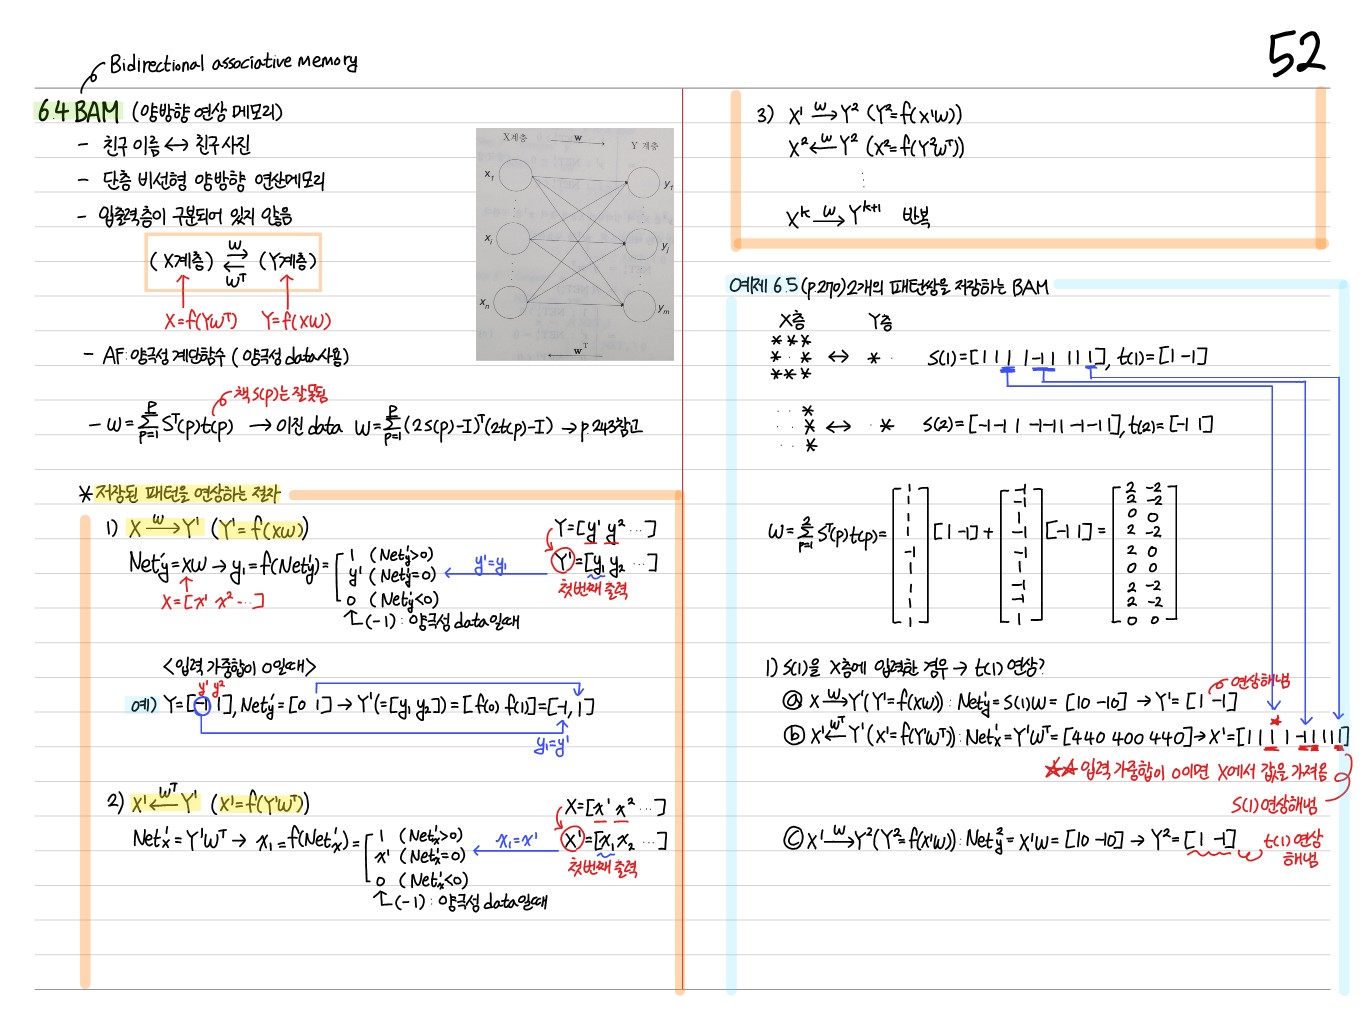 52
Bidirectional associative memory
6.4 BAM (양방향 연상 메모리)
- 친구 이름 ↔ 친구 사진
- 단층 비선형 양방향 연산메모리
- 입출력층이 구분되어 있지 않음
(X계층) W ⇄ Wᵀ (Y계층)
X=f(YWᵀ) Y=f(XW)
X계층 w Y 계층
x₁ y₁
xᵢ yⱼ
xₙ yₘ
wᵀ
- AF: 양극성 계단함수 (양극성 data 사용)
책 S(p)는 잘못됨
- W = Σ_{p=1}^{P} Sᵀ(p)t(p) → 이진 data W = Σ_{p=1}^{P} (2S(p)-I)ᵀ(2t(p)-I) → p.243참고
* 저장된 패턴을 연상하는 절차
1) X →(W) Y' (Y'=f(XW))
Y=[y¹ y² ⋯]
Net'y = XW → y₁=f(Net'y) = [ 1 (Net'y>0)
y¹ (Net'y=0)
0 (Net'y<0)
y¹=y₁
Y'=[y₁ y₂ ⋯]
첫번째 출력
X=[x¹ x² ⋯]
(-1): 양극성 data일때
<입력 가중합이 0일때>
y¹ y²
예) Y=[-1 1], Net'y=[0 1] → Y'(=[y₁ y₂])=[f(0) f(1)]=[-1, 1]
y₁=y¹
2) X' ←(Wᵀ) Y' (X'=f(Y'Wᵀ))
X=[x¹ x² ⋯]
Net'x = Y'Wᵀ → x₁=f(Net'x) = [ 1 (Net'x>0)
x¹ (Net'x=0)
0 (Net'x<0)
x₁=x¹
X'=[x₁ x₂ ⋯]
첫번째 출력
(-1): 양극성 data일때
3) X' →(W) Y² (Y²=f(X'W))
X² ←(W) Y² (X²=f(Y²Wᵀ))
⋮
Xᵏ →(W) Yᵏ⁺¹ 반복
예제 6.5 (p.270) 2개의 패턴쌍을 저장하는 BAM
X층 Y층
* * *
* · * ↔ * · S(1)=[1 1 1 1 -1 1 1 1 1], t(1)=[1 -1]
* * *
· · *
· · * ↔ · * S(2)=[-1 -1 1 -1 -1 1 -1 -1 1], t(2)=[-1 1]
· · *
W = Σ_{p=1}^{2} Sᵀ(p)t(p) = [1 1 1 1 -1 1 1 1 1] [1 -1] + [-1 -1 1 -1 -1 1 -1 -1 1] [-1 1] = [2 -2
2 -2
0 0
2 -2
2 0
0 0
2 -2
2 -2
0 0]
1) S(1)을 X층에 입력한 경우 → t(1) 연상?
연상해냄
ⓐ X →(W) Y' (Y'=f(XW)) : Net'y=S(1)W = [10 -10] → Y'=[1 -1]
ⓑ X' ←(Wᵀ) Y' (X'=f(Y'Wᵀ)) : Net'x=Y'Wᵀ=[440 400 440] → X'=[1 1 1 1 -1 1 1 1 1]
★★ 입력 가중합이 0이면 X에서 값을 가져옴
S(1) 연상해냄
ⓒ X' →(W) Y² (Y²=f(X'W)) : Net²y=X'W = [10 -10] → Y²=[1 -1]
t(1) 연상
해냄